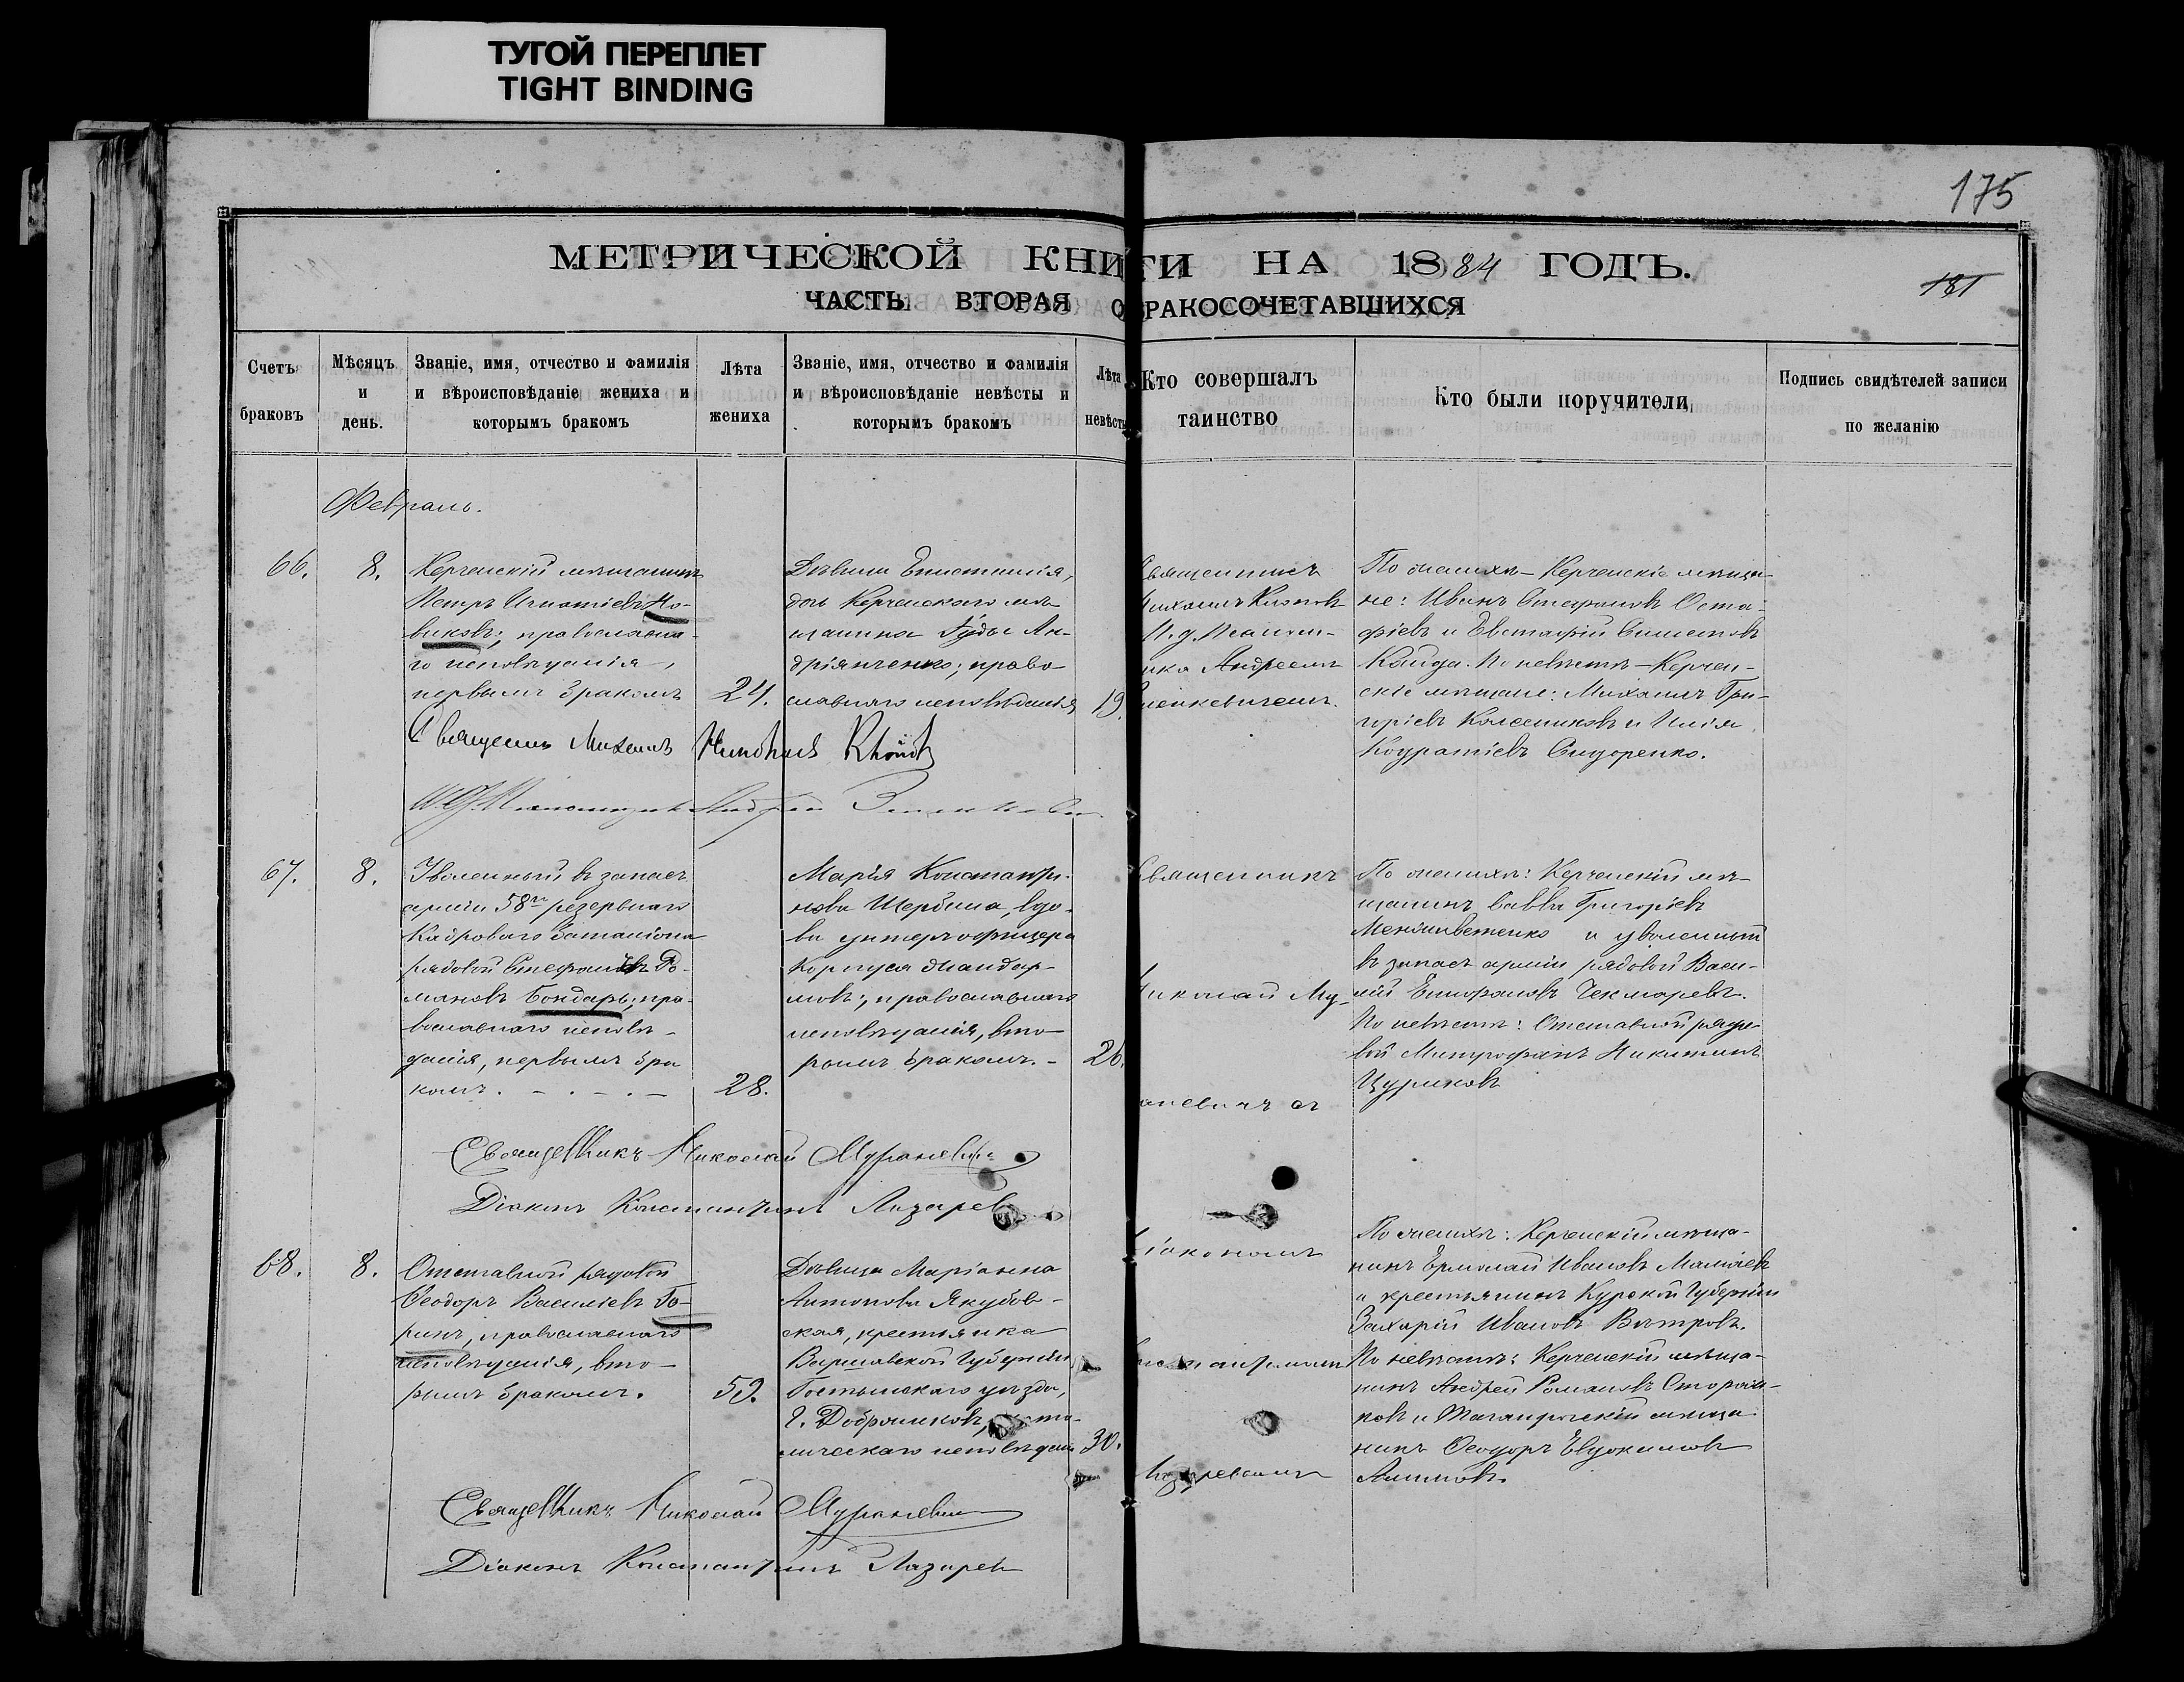 ТУГОЙ ПЕРЕПЛЕТ
TIGHT BINDING
175
МЕТРИЧЕСКОЙ КНИГИ НА 1884 ГОДЪ.
181
ЧАСТЬ ВТОРАЯ О БРАКОСОЧЕТАВШИХСЯ
Счетъ браковъ
Мѣсяцъ и день.
Званіе, имя, отчество и фамилія и вѣроисповѣданіе жениха и которымъ бракомъ
Лѣта жениха
Званіе, имя, отчество и фамилія и вѣроисповѣданіе невѣсты и которымъ бракомъ
Лѣта невѣсты
Кто совершалъ таинство
Кто были поручители
Подпись свидѣтелей записи по желанію
Февраль.
66.
8.
Керченскій мѣщанинъ
Петръ Игнатіевъ Но-
виковъ; православна-
го исповѣданія,
первымъ бракомъ
24.
Дѣвица Епистимія,
дочь Керченскаго мѣ
щанина Гуды Ан-
дріянченко; право
славнаго исповѣданія
19.
Священникъ
Михаилъ
И. д. Псалом-
ика Андреемъ
По женихѣ - Керченскіе мѣща-
не: Иванъ Стефановъ Оста-
фіевъ и Евстафій
Кайда. По невѣстѣ - Керчен-
скіе мѣщане: Михаилъ Гри-
горіевъ Колесниковъ и Илія
Кодратіевъ Сидоренко.
Священникъ Михаилъ
И. Д. Псаломщика Андрей
67.
8.
Уволенный въ запасъ
арміи 58го резервнаго
Кадроваго баталіона
рядовой Стефанъ Ро-
мановъ Бондарь; пра-
вославнаго исповѣ-
данія, первымъ бра
комъ. - . - . -
28.
Марія Константи-
нова Щербина, вдо-
ва унтеръ офицера
Корпуса жандар-
мовъ; православнаго
исповѣданія, вто-
рымъ бракомъ. -
26.
Священникъ
Николай Му-
аневичъ съ
По женихѣ: Керченскій мѣ-
щанинъ Савва Григоріевъ
и уволенный
въ запасъ арміи рядовой Васи-
лій Епифановъ Чекмаревъ.
По невѣстѣ: Отставной рядо-
вой Митрофанъ Никитинъ
Цуриковъ
Священникъ Николай Мураневичъ
Діаконъ Константинъ Лазаревъ
68.
8.
Отставной рядовой
Ѳеодоръ Василіевъ Го-
ринъ, православнаго
исповѣданія, вто-
рымъ бракомъ.
59.
Дѣвица Маріанна
Антонова Якубов-
ская, крестьянка
Варшавской Губерніи
Гостынскаго уѣзда,
г.
лическаго исповѣдан
30.
іакономъ
Лазаревымъ
По женихѣ: Керченскій мѣща-
нинъ Ермолай Ивановъ
и крестьянинъ Курской Губерніи
Захарій Ивановъ Вѣтровъ.
По невѣстѣ: Керченскій мѣща-
нинъ Андрей Романовъ Сторож-
ковъ и Таганрогскій мѣща
нинъ Ѳеодоръ Евдокимовъ
Священникъ Николай Мураневичъ
Діаконъ Константинъ Лазаревъ